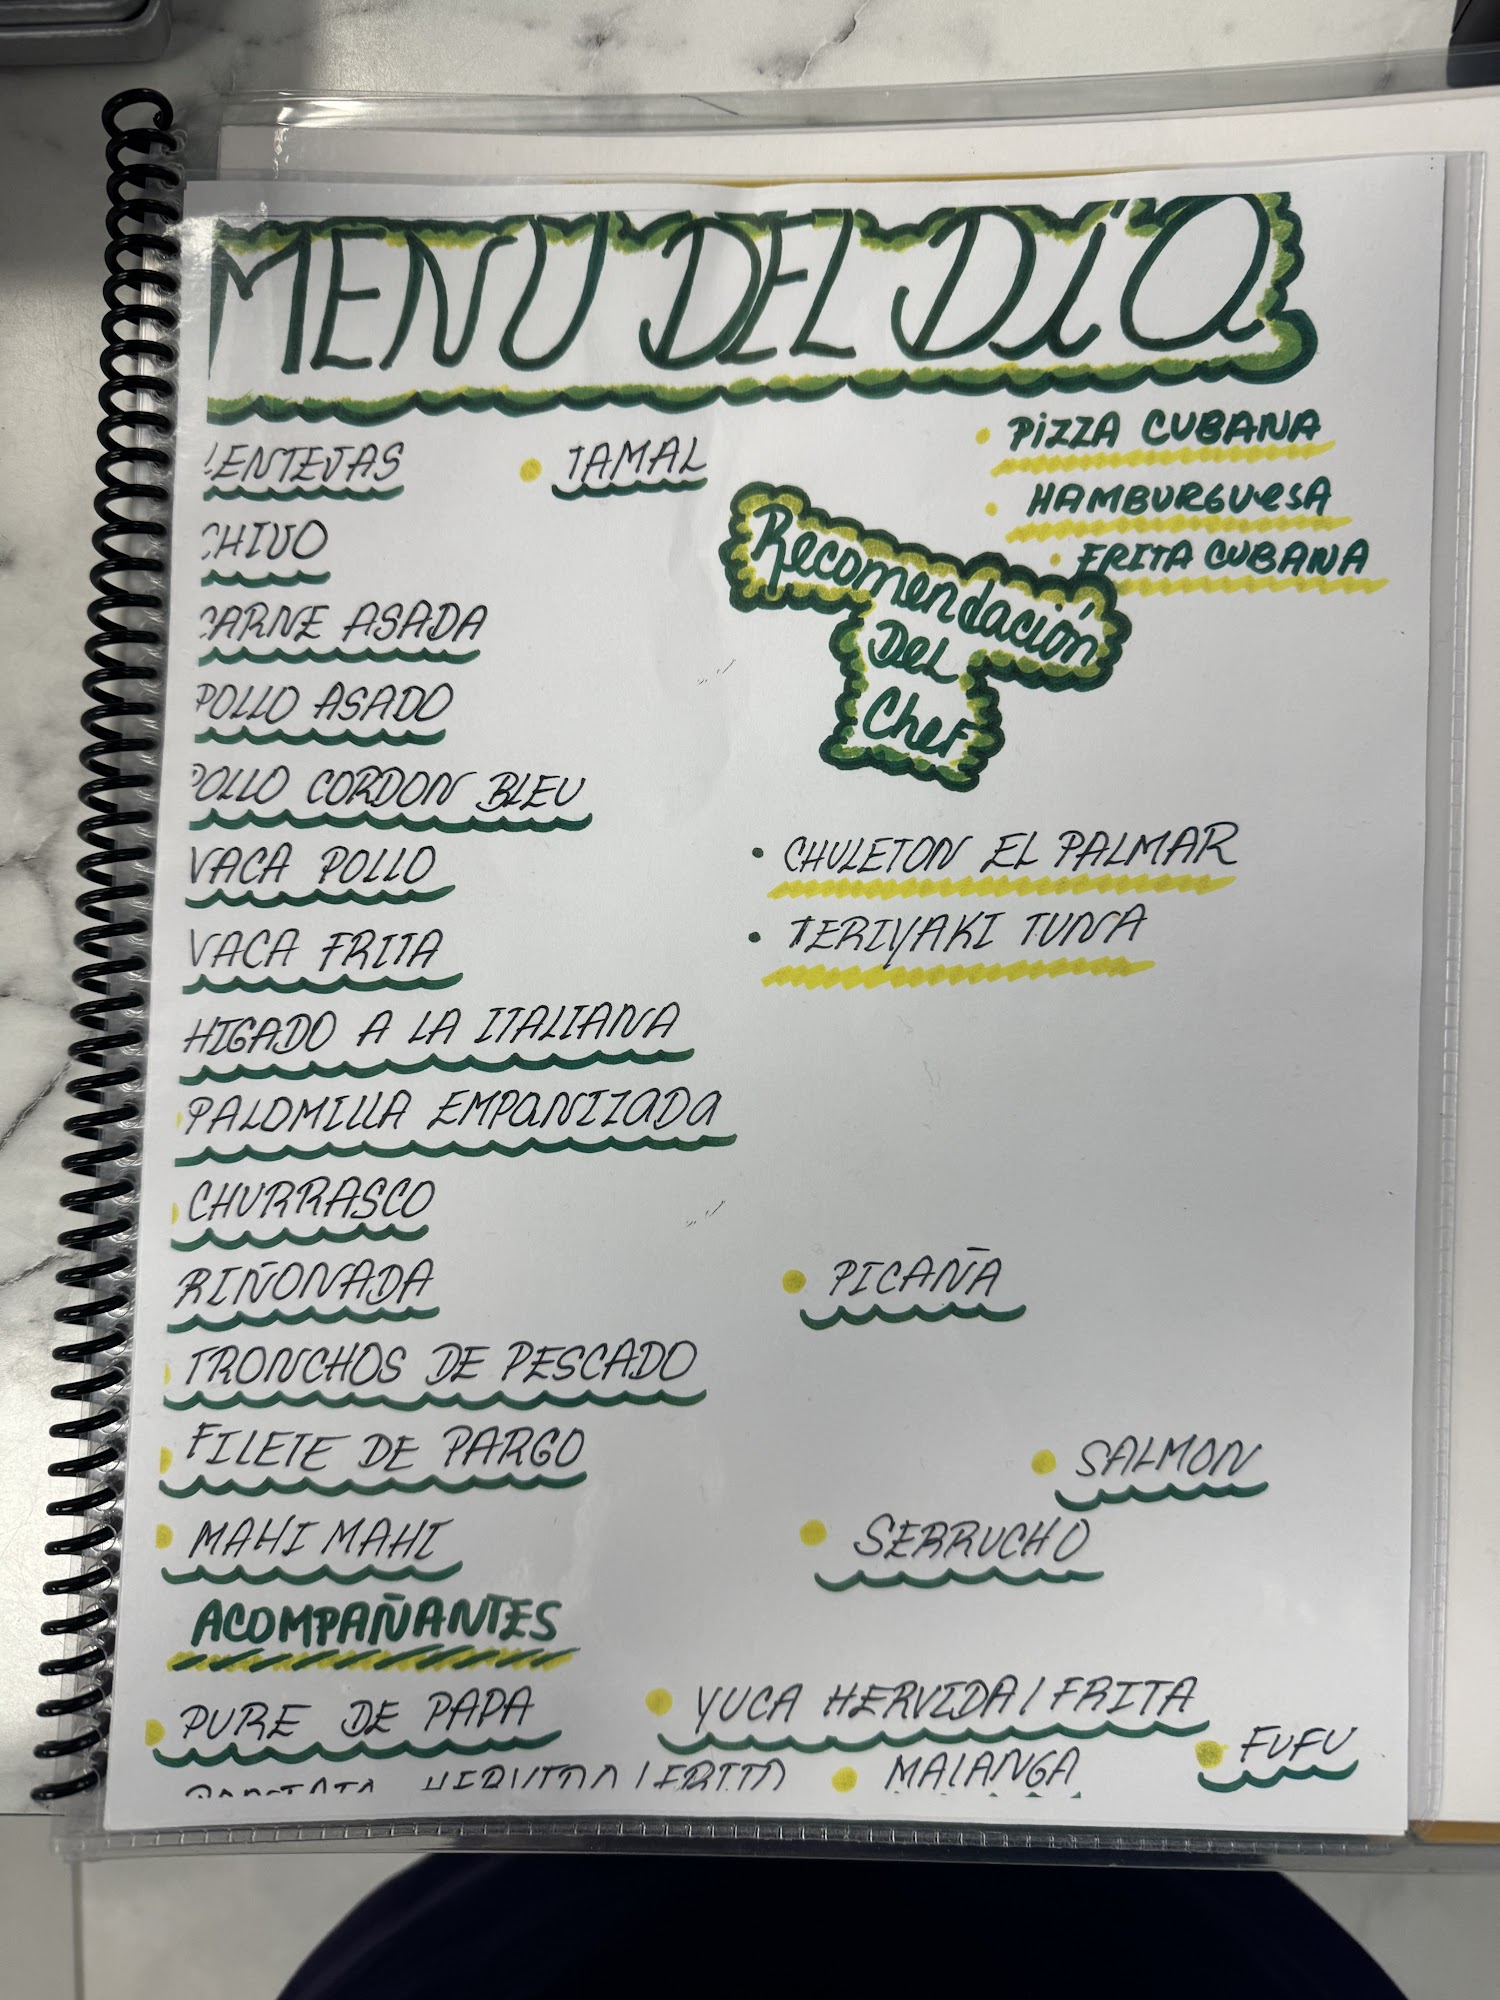 MENU DEL DÍA
LENTEJAS
TAMAL
PIZZA CUBANA
HAMBURGUESA
FRITA CUBANA
CHIVO
Recomendación
Del
Chef
CARNE ASADA
POLLO ASADO
POLLO CORDON BLEU
VACA POLLO
CHULETON EL PALMAR
VACA FRITA
TERIYAKI TUNA
HIGADO A LA ITALIANA
PALOMILLA EMPANIZADA
CHURRASCO
RIÑONADA
PICAÑA
TRONCHOS DE PESCADO
FILETE DE PARGO
SALMON
MAHI MAHI
SERRUCHO
ACOMPAÑANTES
PURE DE PAPA
YUCA HERVIDA / FRITA
FUFU
HERVIDA / FRITA
MALANGA